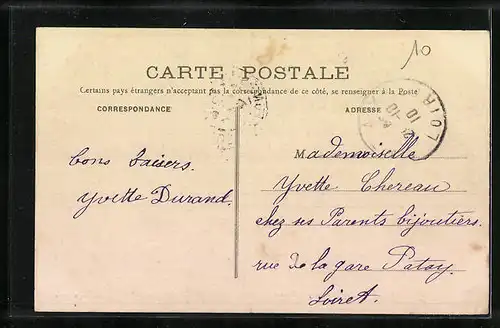 10
CARTE POSTALE
Certains pays étrangers n'acceptant pas la correspondance de ce côté, se renseigner à la Poste
CORRESPONDANCE
ADRESSE
LOIR
10
bons baisers.
yvette Durand.
Mademoiselle
Yvette Chereau
chez ses Parents bijoutiers.
rue de la gare Patay.
Loiret.